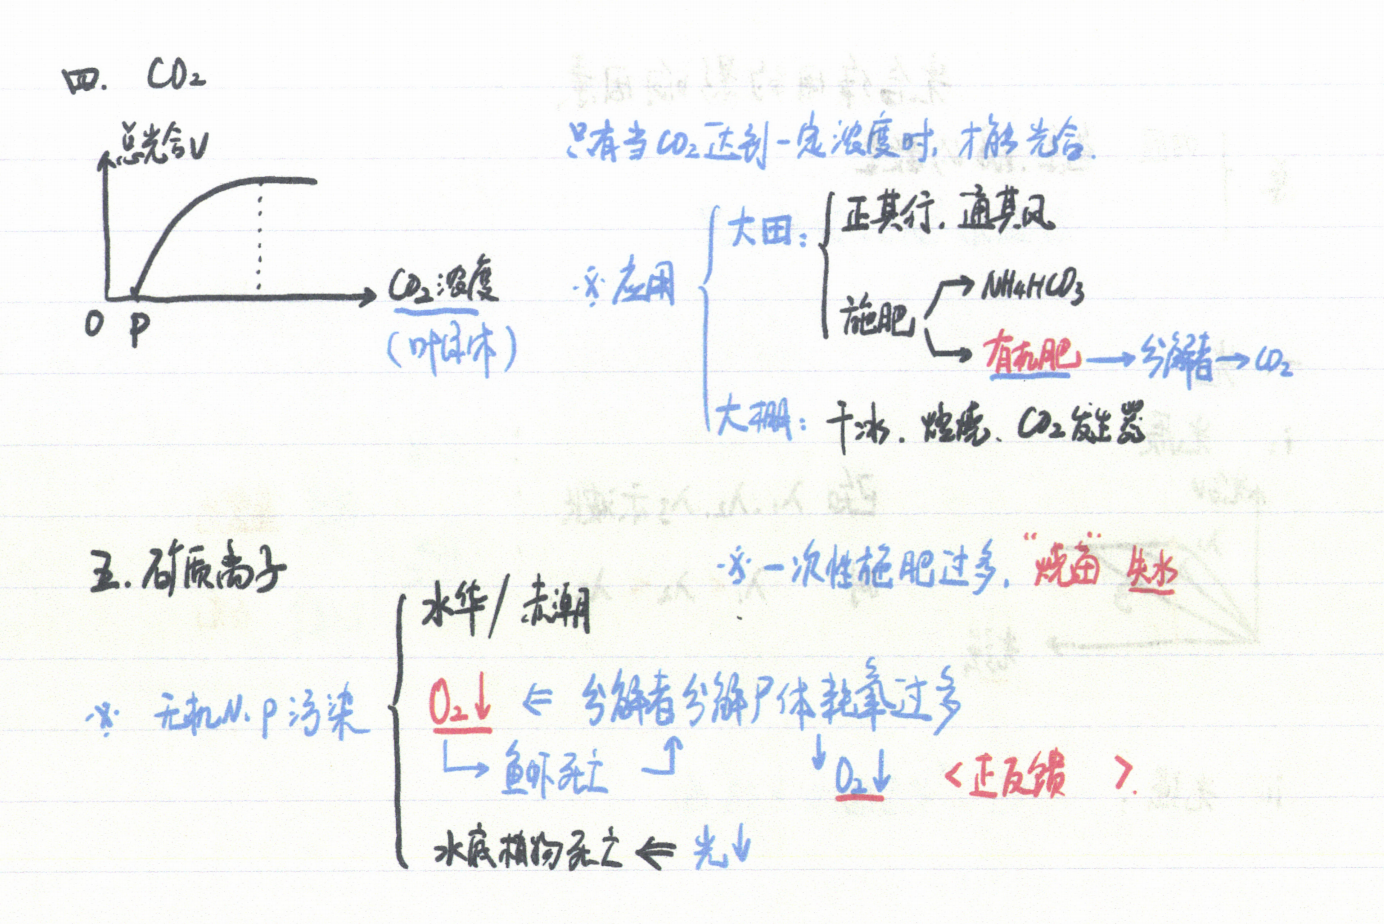 四. CO₂
总光合V
只有当CO₂达到一定浓度时,才能光合.
O P CO₂浓度
(叶绿体)
※应用
大田:
正其行.通其风
施肥 → NH₄HCO₃
→ 有机肥 → 分解者 → CO₂
大棚: 干冰.燃烧、CO₂发生器
五.矿质离子
※一次性施肥过多,“烧苗” 失水
※ 无机N.P污染
水华/赤潮
O₂↓ ⇐ 分解者分解尸体耗氧过多
↳ 鱼虾死亡 ↓ O₂↓ <正反馈>.
水底植物死亡 ⇐ 光↓